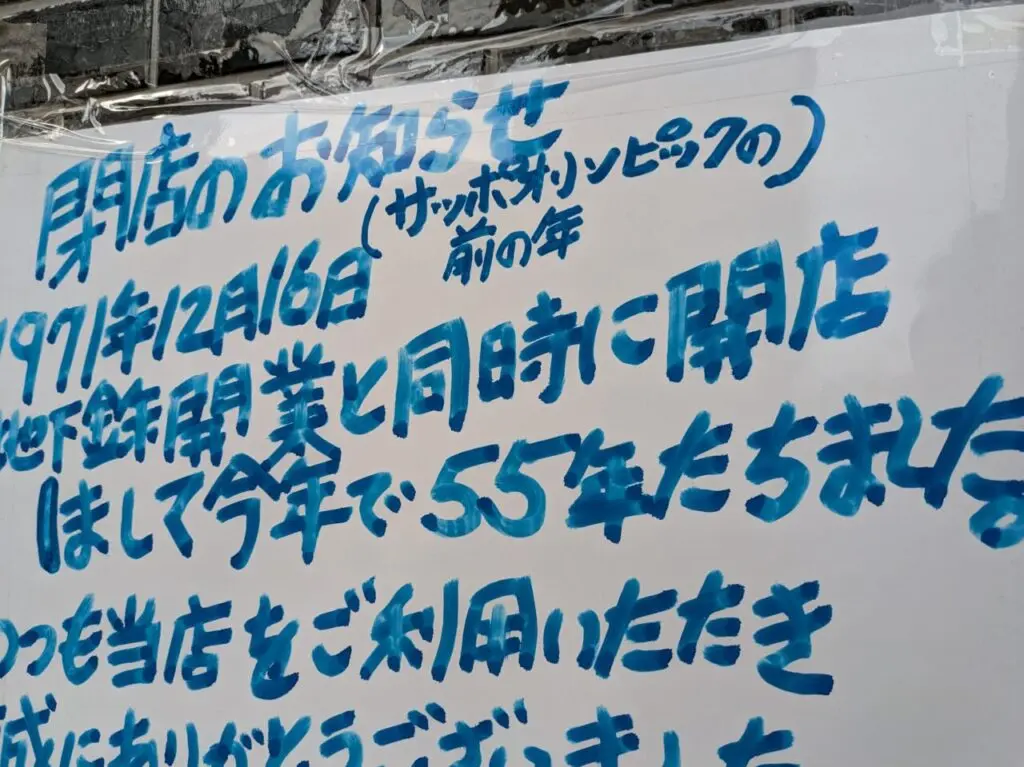 閉店のお知らせ
(サッポロオリンピックの)
前の年
1971年12月16日
地下鉄開業と同時に開店
しまして今年で55年たちました。
いつも当店をご利用いただき
誠にありがとうございました